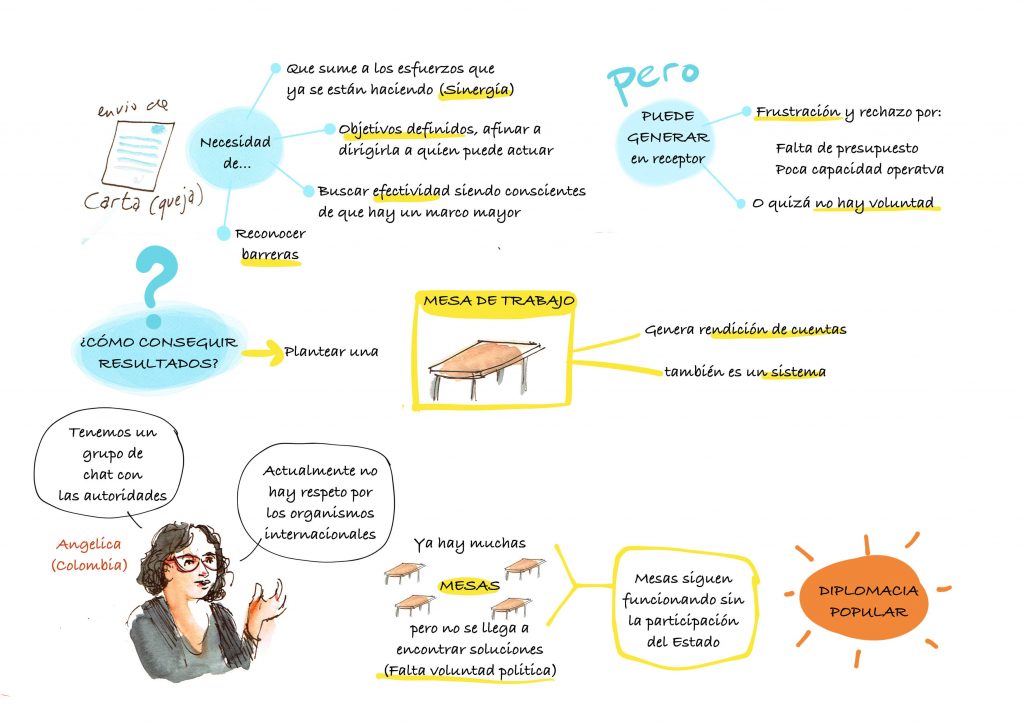 envio de
carta (queja)
Necesidad
de...
Que sume a los esfuerzos que
ya se están haciendo (Sinergia)
Objetivos definidos, afinar a
dirigirla a quien puede actuar
Buscar efectividad siendo conscientes
de que hay un marco mayor
Reconocer
barreras
pero
PUEDE
GENERAR
en receptor
Frustración y rechazo por:
Falta de presupuesto
Poca capacidad operatva
O quizá no hay voluntad
?
¿CÓMO CONSEGUIR
RESULTADOS?
Plantear una
MESA DE TRABAJO
Genera rendición de cuentas
también es un sistema
Tenemos un
grupo de
chat con
las autoridades
Actualmente no
hay respeto por
los organismos
internacionales
Angelica
(Colombia)
Ya hay muchas
MESAS
pero no se llega a
encontrar soluciones
(Falta voluntad política)
Mesas siguen
funcionando sin
la participación
del Estado
DIPLOMACIA
POPULAR